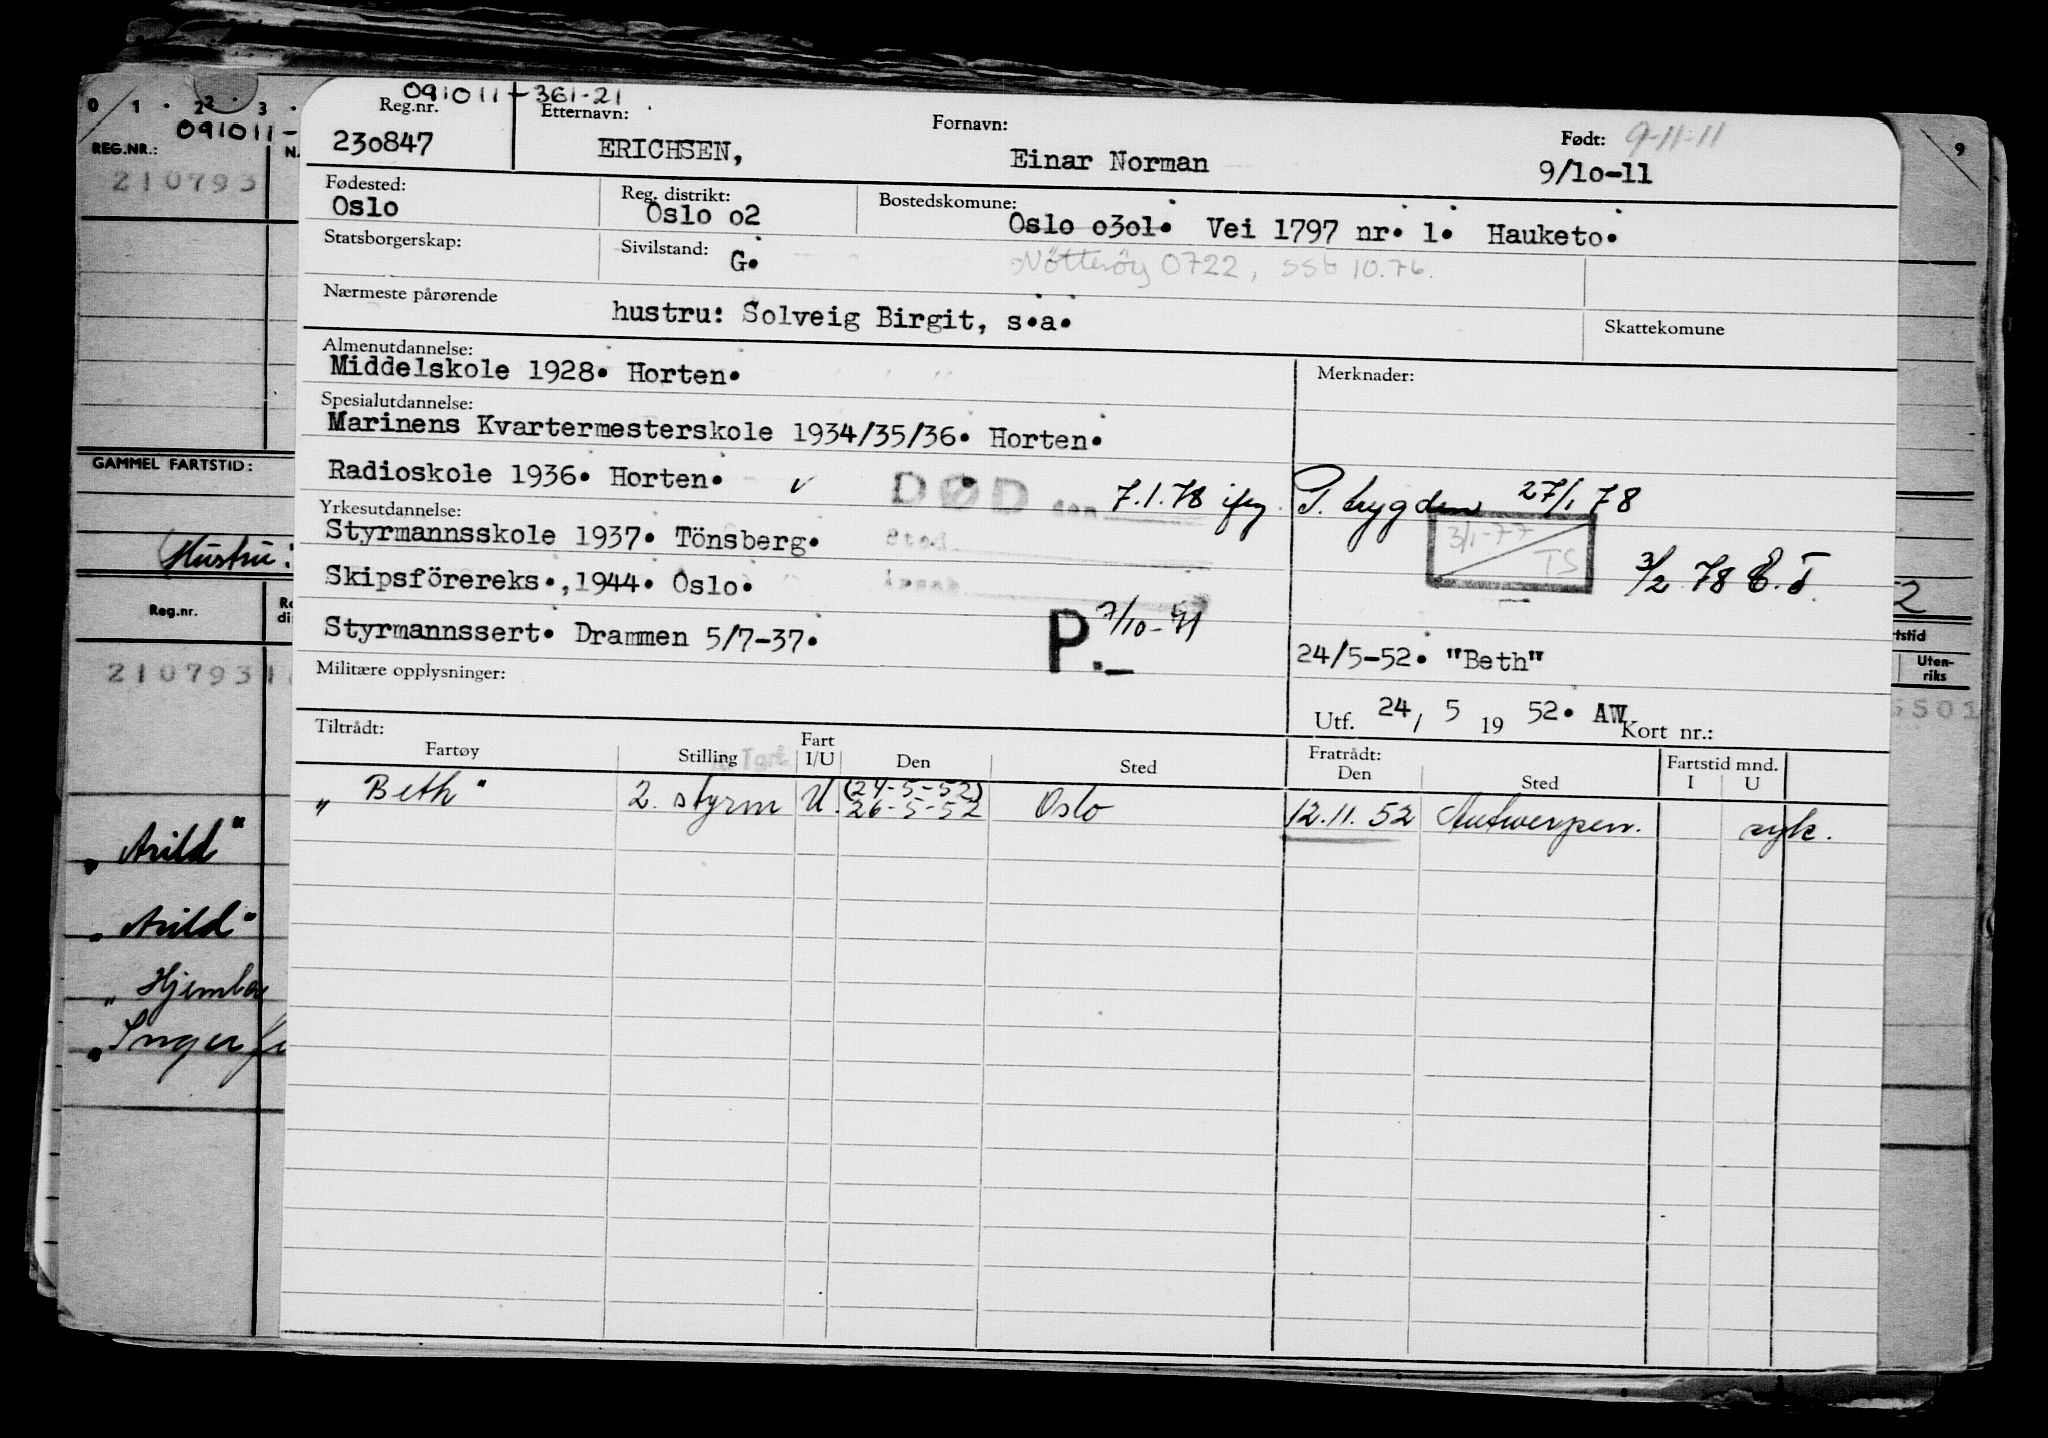 0 1 2 3
091011-
REG.NR.:
210793
GAMMEL FARTSTID:
Hustru:
Reg.nr.
210793
„Arild"
„Arild"
„Hjemb
„Inger
091011-361-21
Reg.nr. Etternavn: Fornavn: Født: 9-11-11
230847 ERICHSEN, Einar Norman 9/10-11
Fødested: Reg. distrikt: Bostedskomune:
Oslo Oslo 02 Oslo 0301. Vei 1797 nr. 1. Hauketo.
Statsborgerskap: Sivilstand: G. Nötteröy 0722, 10.76.
Nærmeste pårørende
hustru: Solveig Birgit, s.a. Skattekomune
Almenutdannelse: Merknader:
Middelskole 1928. Horten.
Spesialutdannelse:
Marinens Kvartermesterskole 1934/35/36. Horten.
Radioskole 1936. Horten. v DØD den 7.1.78 ifg. P. trygden 27/1 78
Yrkesutdannelse: Sted
Styrmannsskole 1937. Tönsberg. 3/1-77 TS 3/2 78 E.T.
Skipsförereks.,1944. Oslo.
Styrmannssert. Drammen 5/7-37. P.- 7/10-71
24/5-52. "Beth"
Militære opplysninger:
Utf. 24, 5 19 52. AW Kort nr.:
Tiltrådt: Fratrådt:
Fartøy Stilling Fart I/U Den Sted Den Sted Fartstid mnd. I U
„Beth" 2. styrm U. (24-5-52) 26-5-52 Oslo 12.11.52 Antwerpen. syk.
9
2
rtstid
Uten-
riks
501